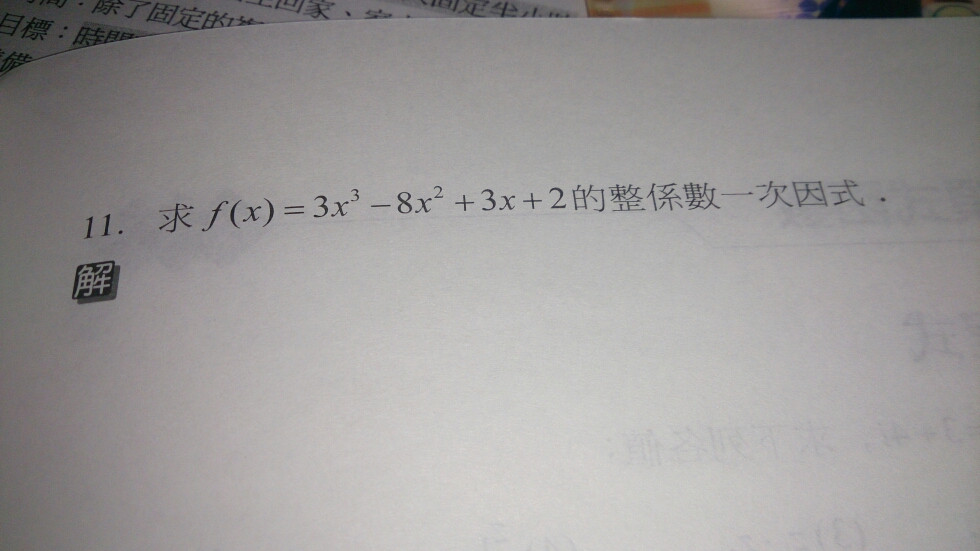 除了固定的
目標：時間
11. 求 f(x) = 3x³ − 8x² + 3x + 2的整係數一次因式．
解